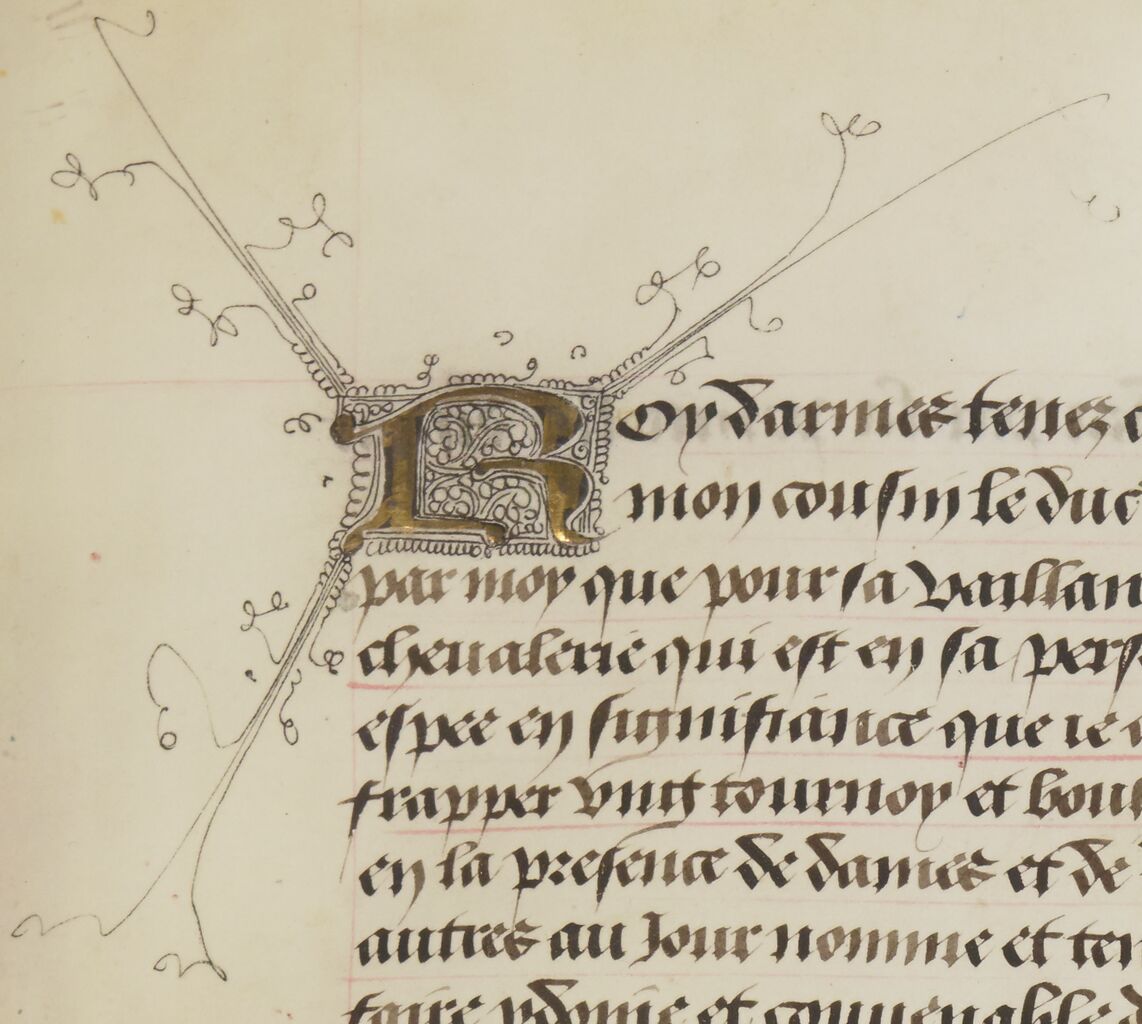 Roy darmes tenez
mon cousin le duc
par moy que pour sa vaillan
chevalerie qui est en sa pers
espee en signifiance que ie
frapper ung tournoy et bou
en la presence de dames et de
autres au Jour nomme et te
faire ydoine et convenable